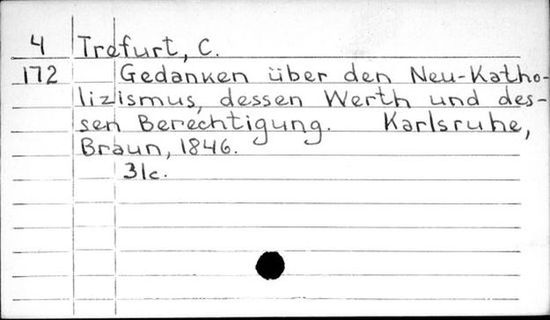 4 Trefurt, C.
172 Gedanken über den Neu-Katho-
lizismus, dessen Werth und des-
sen Berechtigung. Karlsruhe,
Braun, 1846.
31c.